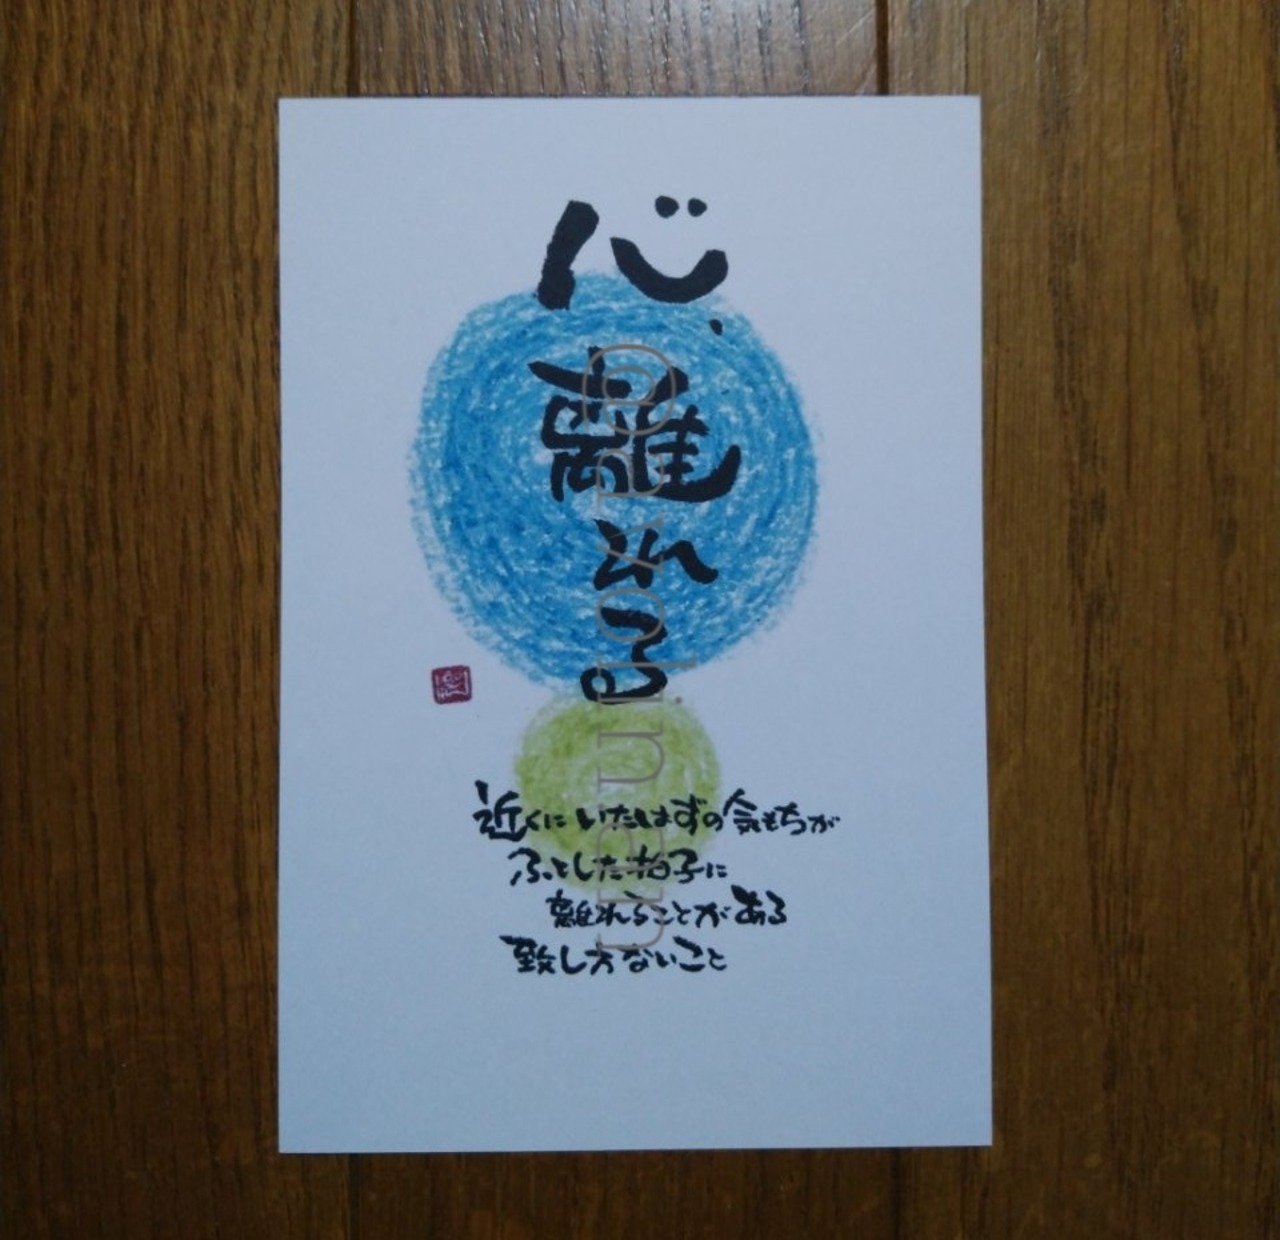 心、離れる
近くにいたはずの気もちが
ふとした拍子に
離れることがある
致し方ないこと